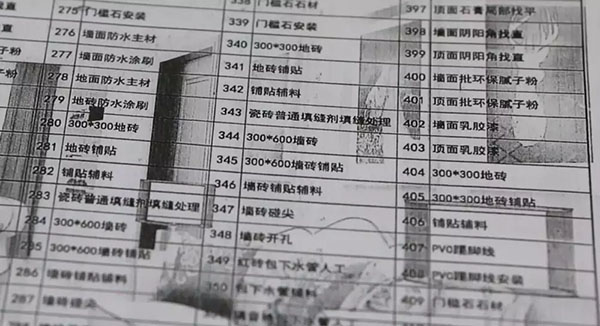 275 门槛石安装
276 墙面防水主材
277 墙面防水涂刷
278 地面防水主材
279 地砖防水涂刷
280 300*300地砖
281 地砖铺贴
282 铺贴辅料
283 瓷砖普通填缝剂填缝处理
284 300*600墙砖
285 300*600墙砖铺贴
286 墙砖铺贴辅料
287 墙砖碰尖
338 门槛石石材
339 门槛石安装
340 300*300地砖
341 地砖铺贴
342 铺贴辅料
343 瓷砖普通填缝剂填缝处理
344 300*600墙砖
345 300*600墙砖铺贴
346 墙砖铺贴辅料
347 墙砖碰尖
348 墙砖开孔
349 红砖包下水管人工
350 包下水管辅料
397 顶面石膏局部找平
398 墙面阴阳角找直
399 顶面阴阳角找直
400 墙面批环保腻子粉
401 顶面批环保腻子粉
402 墙面乳胶漆
403 顶面乳胶漆
404 300*300地砖
405 300*300地砖铺贴
406 铺贴辅料
407 PVC踢脚线
408 PVC踢脚线安装
409 门槛石石材